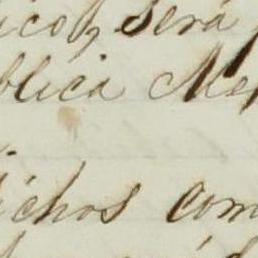 ico, será
blica Me
ichos com